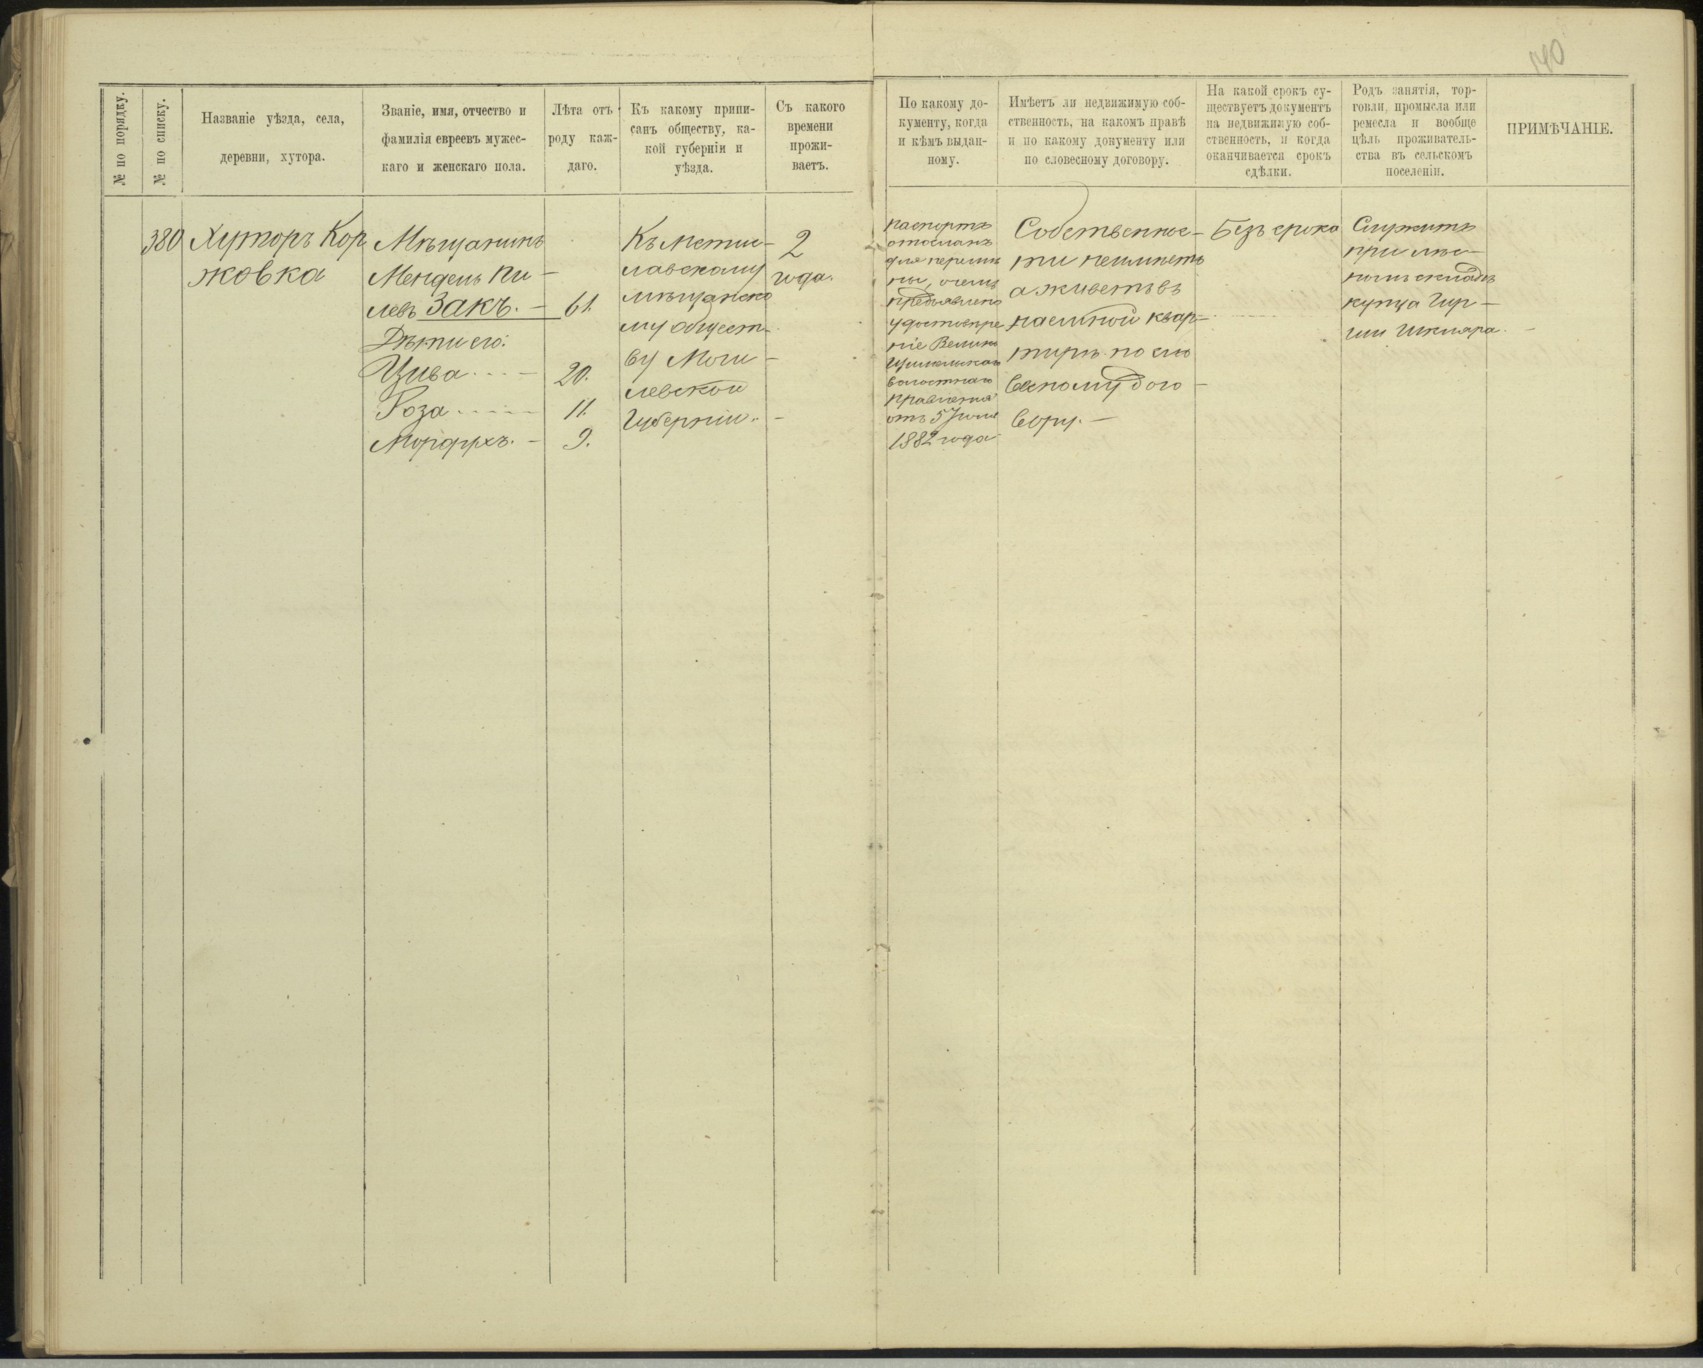 140
№ по порядку.
№ по списку.
Названіе уѣзда, села,
деревни, хутора.
Званіе, имя, отчество и
фамилія евреевъ мужес-
каго и женскаго пола.
Лѣта отъ
роду каж-
даго.
Къ какому припи-
санъ обществу, ка-
кой губерніи и
уѣзда.
Съ какого
времени
прожи-
ваетъ.
По какому до-
кументу, когда
и кѣмъ выдан-
ному.
Имѣетъ ли недвижимую соб-
ственность, на какомъ правѣ
и по какому документу или
по словесному договору.
На какой срокъ су-
ществуетъ документъ
на недвижимую соб-
ственность, и когда
оканчивается срокъ
сдѣлки.
Родъ занятія, тор-
говли, промысла или
ремесла и вообще
цѣль проживатель-
ства въ сельскомъ
поселеніи.
ПРИМѢЧАНІЕ.
380
Хуторъ Кор
жовка
Мѣщанинъ
Мендель Пи-
левъ Закъ. - 61.
Дѣти его:
Цива - 20.
Роза - 11.
Мордухъ. - 9.
Къ Мстис-
лавскому
мѣщанско
му общест-
ву Моги-
левской
Губерніи. -
2
года.
паспортъ
отосланъ
для перемѣ
ны, о чемъ
предъявлено
удостовѣре
ніе Велико
волостнаго
Правленія
отъ 5 Іюля
1882 года
Собственнос-
ти неимѣетъ
а живетъ въ
наемной квар-
тирѣ по сло
весному дого-
вору. -
Безъ срока
Служитъ
при лѣс-
номъ складѣ
купца Гир-
ши Шкляра. -